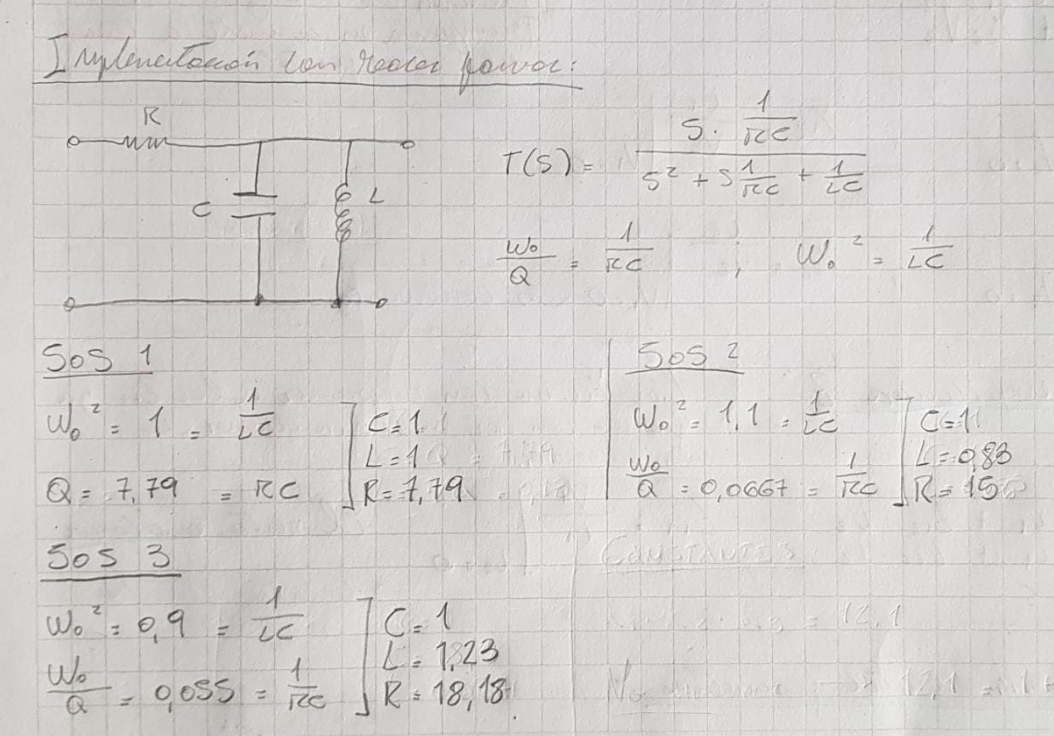 Implementación con redes pasivas:
R
C
L
T(S) = (S · 1/RC) / (S² + S 1/RC + 1/LC)
Wo/Q = 1/RC ; Wo² = 1/LC
SOS 1
Wo² = 1 = 1/LC
Q = 7,79 = RC
C = 1
L = 1
R = 7,79
SOS 2
Wo² = 1,1 = 1/LC
Wo/Q = 0,0667 = 1/RC
C = 1
L = 0,83
R = 15
SOS 3
Wo² = 0,9 = 1/LC
Wo/Q = 0,055 = 1/RC
C = 1
L = 1,23
R = 18,18